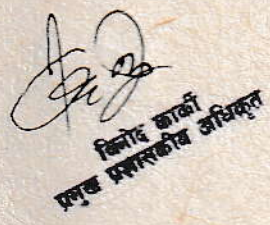 विनोद कार्की
प्रमुख प्रशासकीय अधिकृत